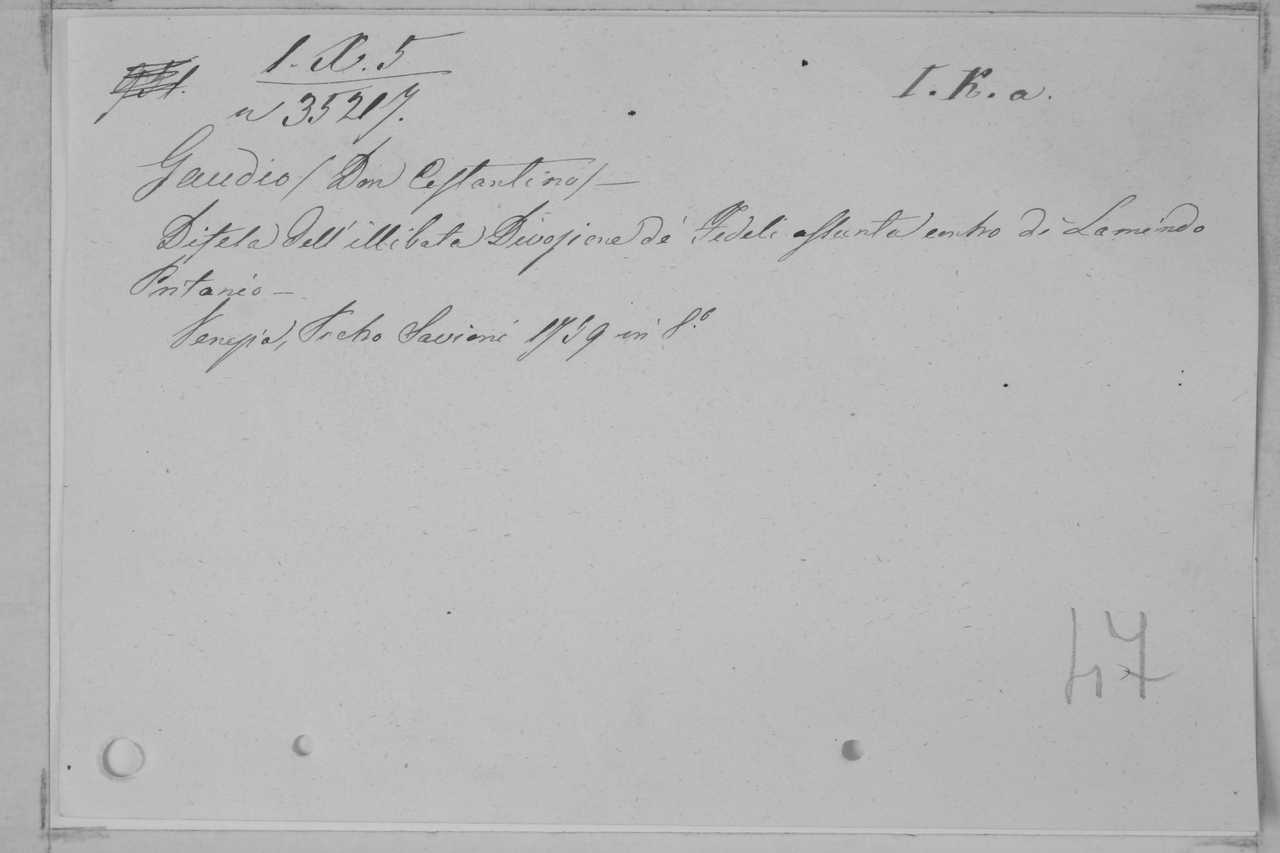 1. X. 5
I. K. a.
n 35217.
Gaudio / Don Costantino / —
Difesa dell'illibata Divozione de' Fedeli assunta contro di Lamindo
Pritanio —
Venezia, Savioni 1739 in 8.º
47